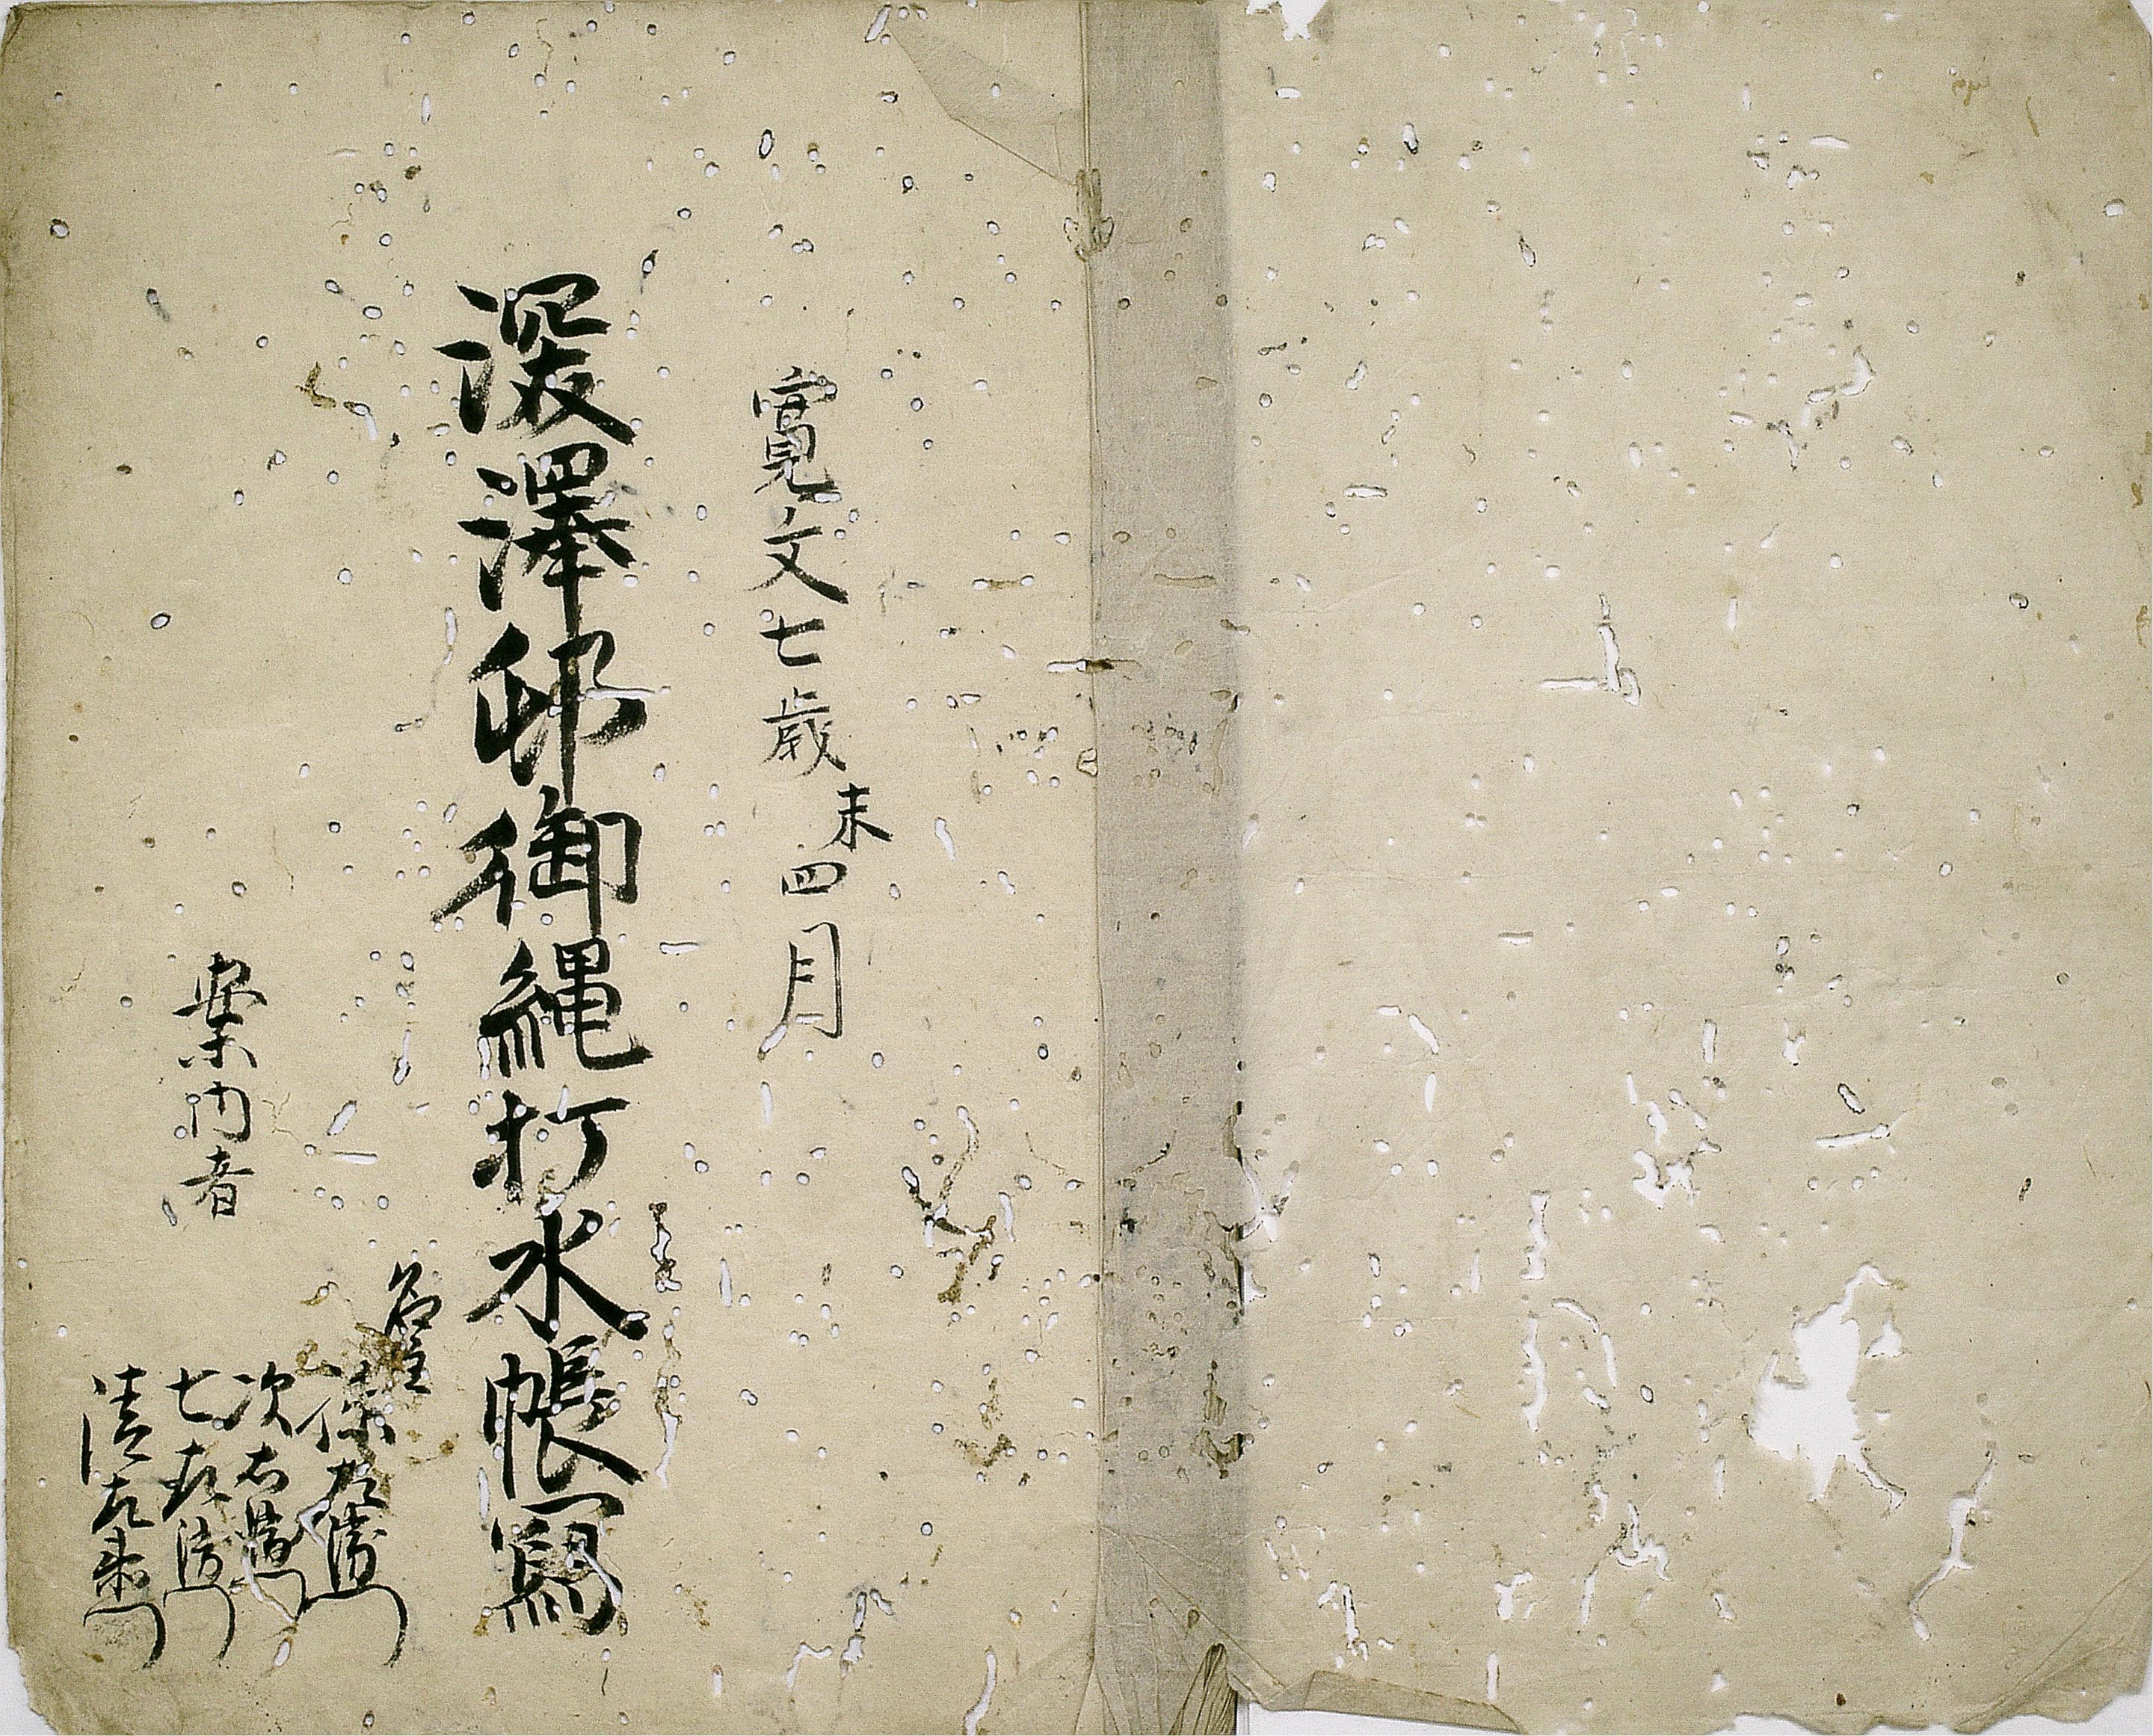 寛文七歳末四月
深澤邨御縄打水帳寫
案内者
名主
次右衛門
七兵衛
清左衛門